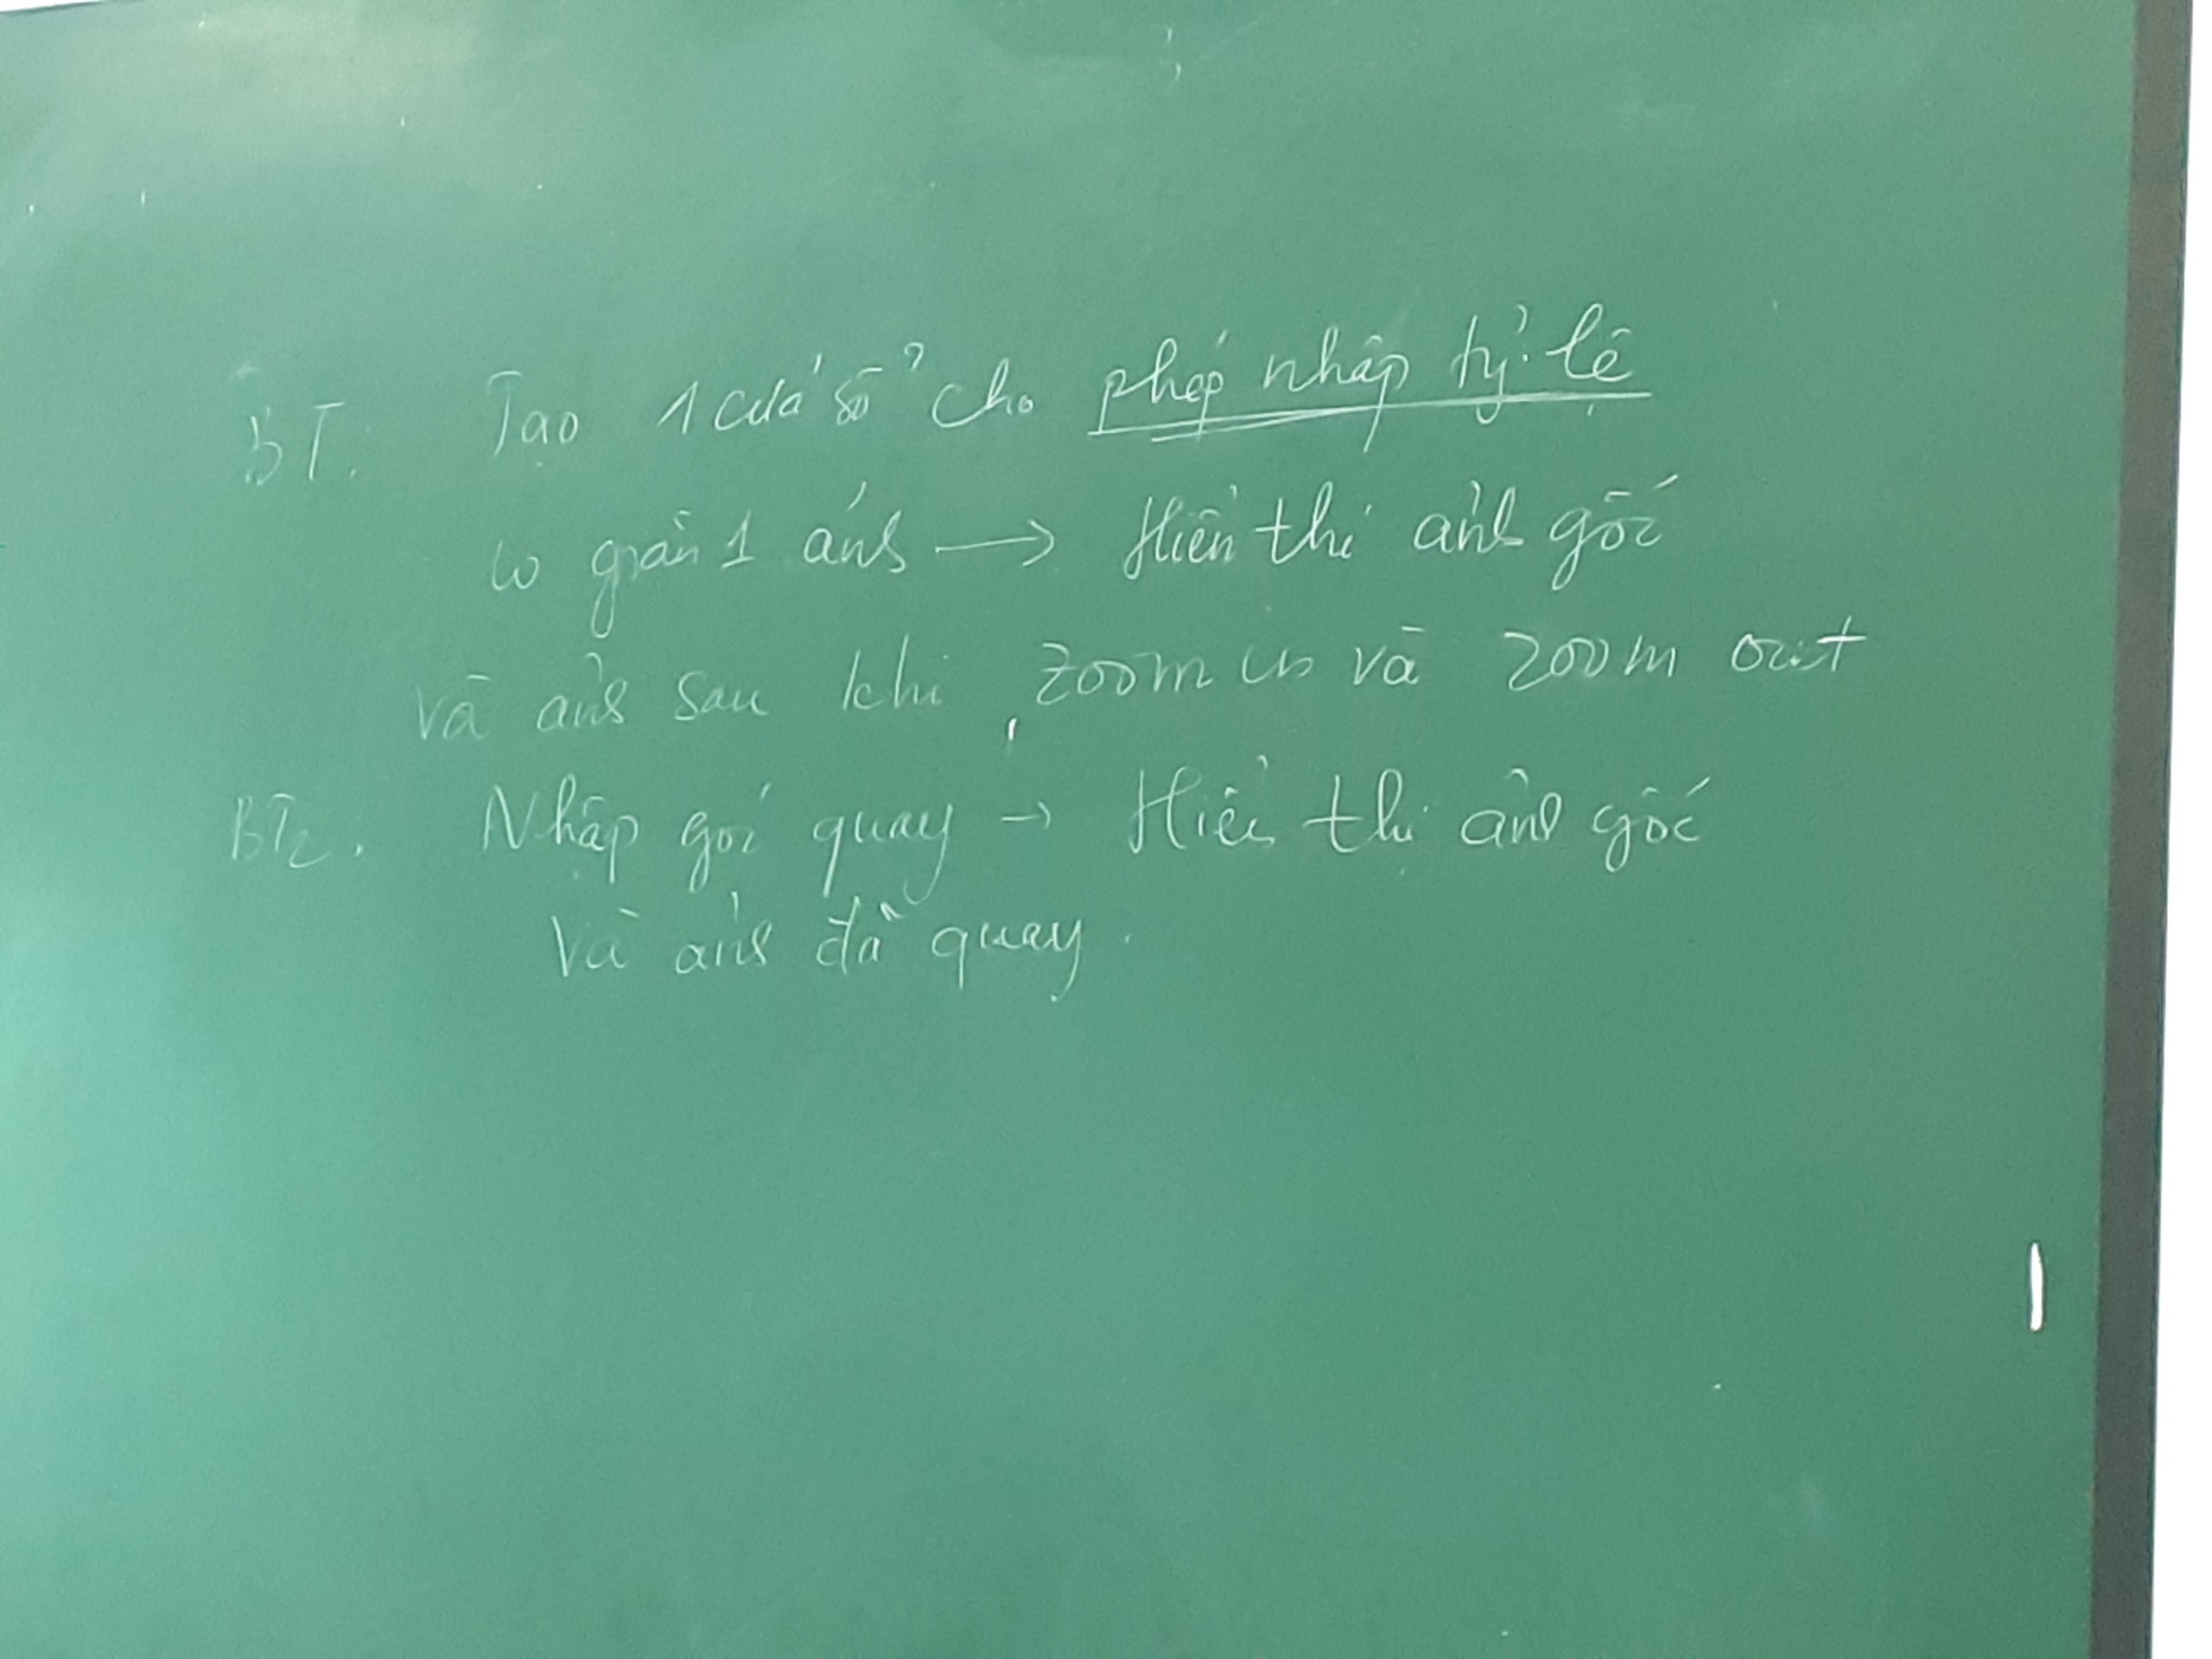 BT. Tạo 1 cửa sổ cho phép nhập tỷ lệ
co giãn 1 ảnh → Hiển thị ảnh gốc
và ảnh sau khi zoom in và zoom out
BT2. Nhập góc quay → Hiển thị ảnh gốc
và ảnh đã quay.